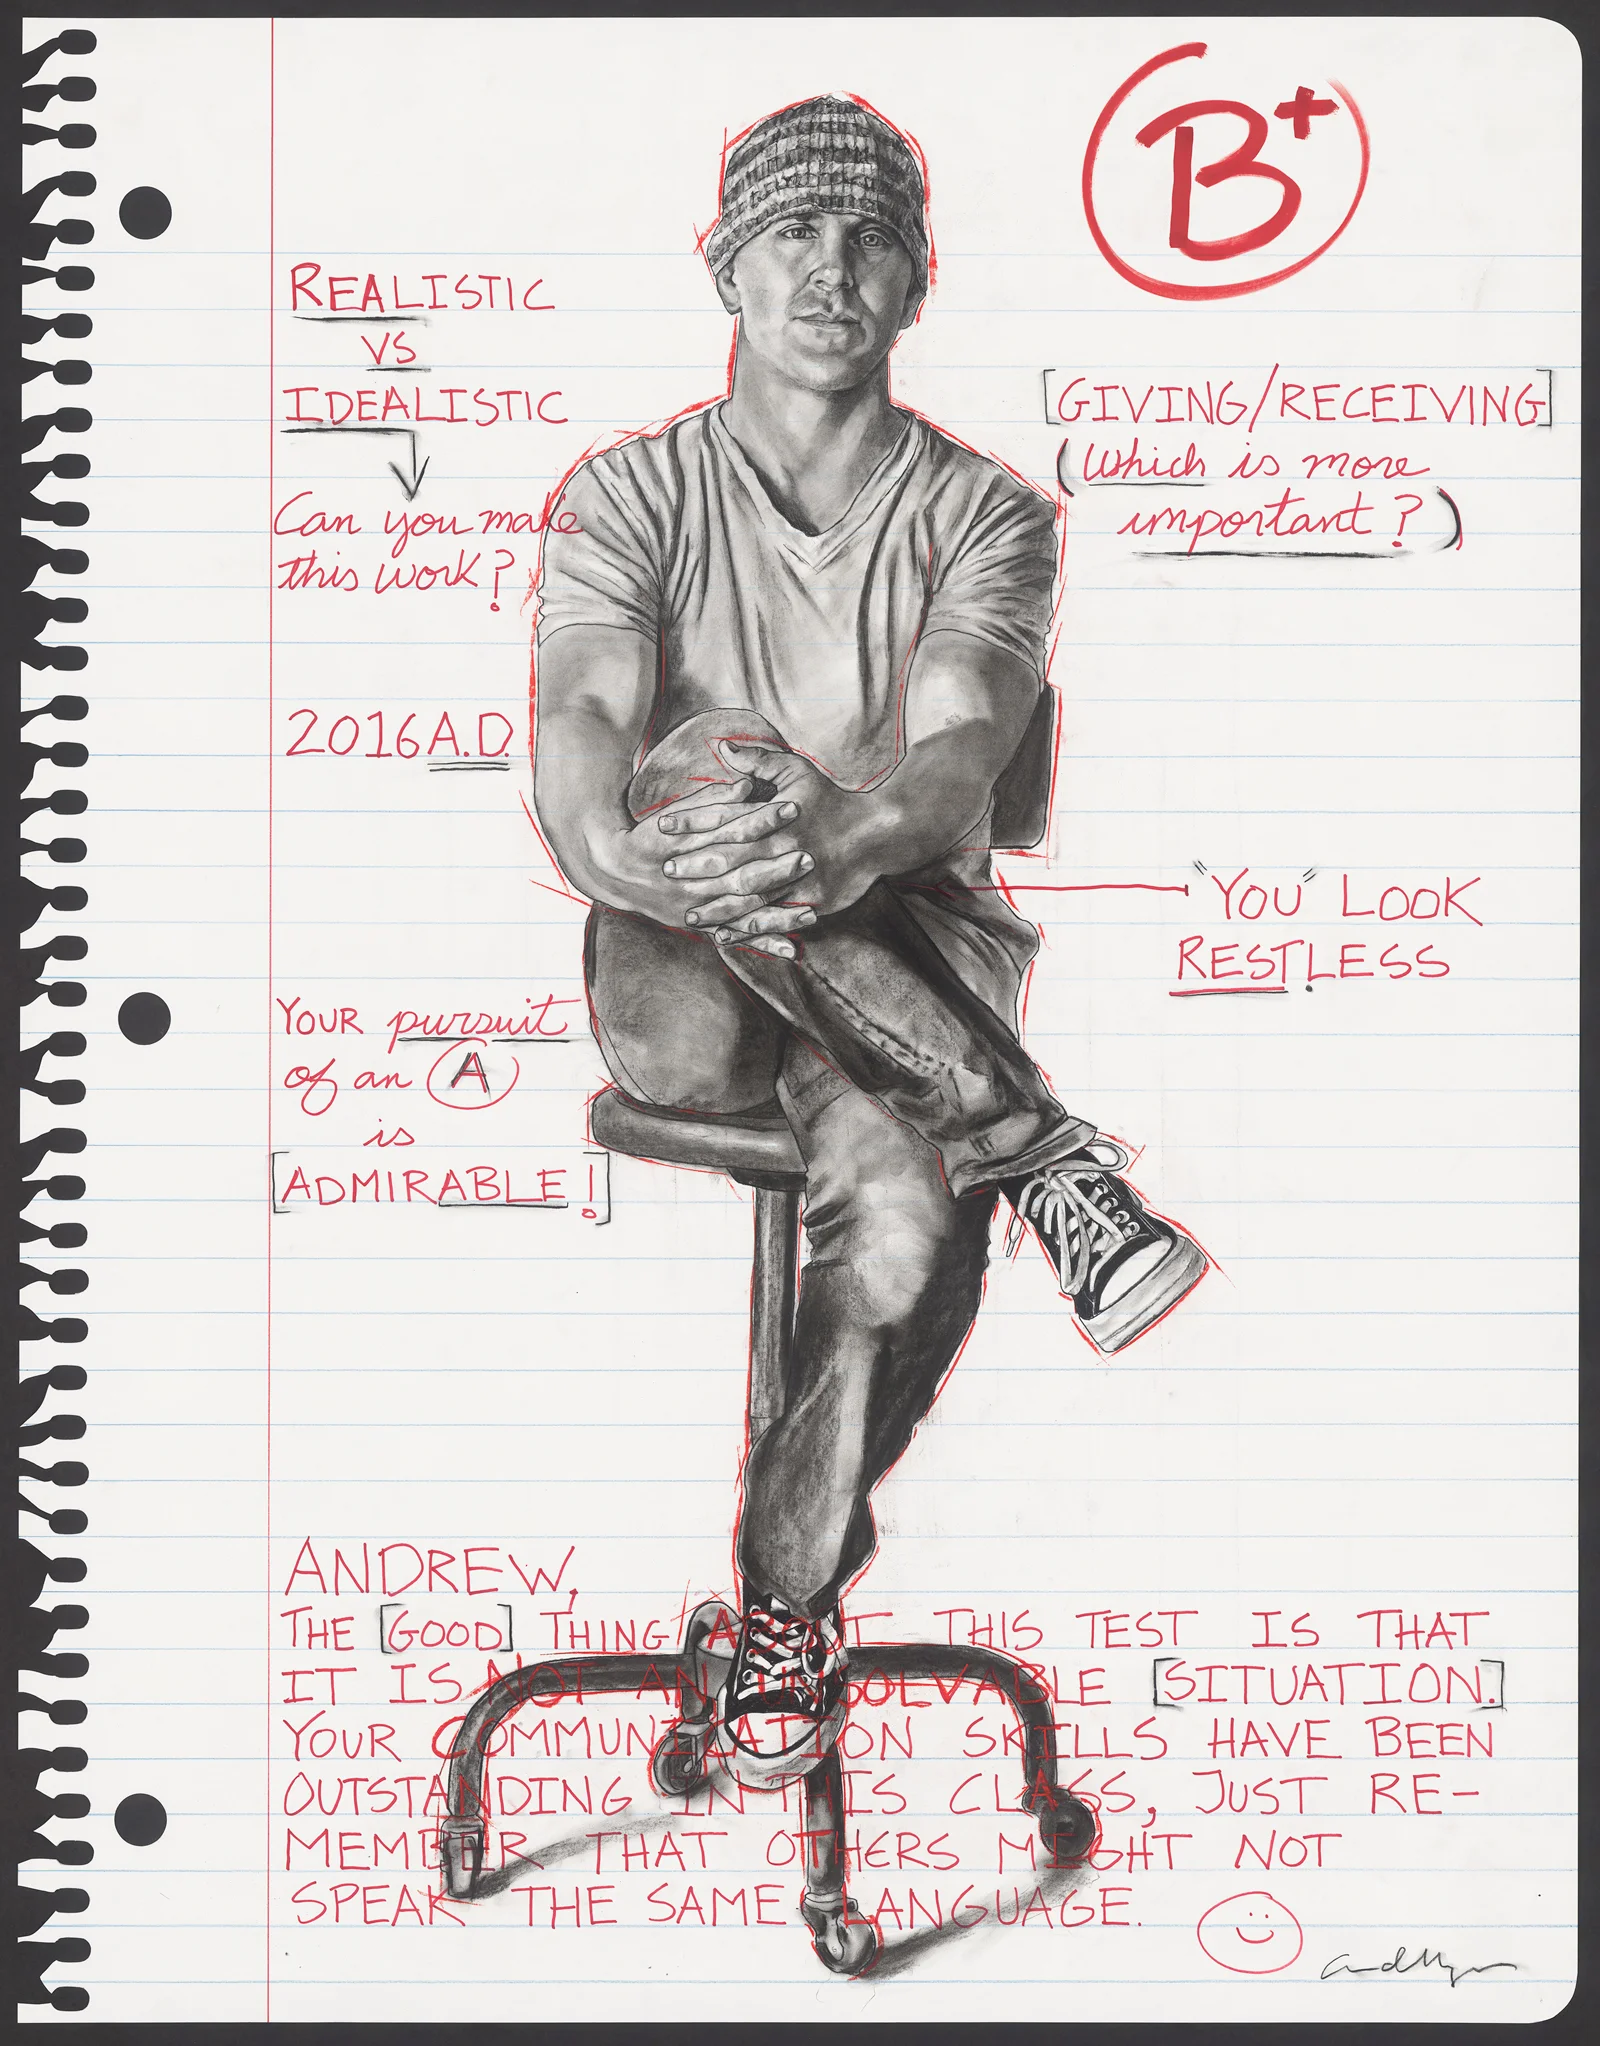 B+
REALISTIC
VS
IDEALISTIC
Can you make
this work?
[GIVING/RECEIVING]
(Which is more
important?)
2016 A.D.
"YOU" LOOK
RESTLESS
YOUR pursuit
of an A
is
[ADMIRABLE!]
ANDREW,
THE [GOOD] THING ABOUT THIS TEST IS THAT
IT IS NOT AN UNSOLVABLE [SITUATION.]
YOUR COMMUNICATION SKILLS HAVE BEEN
OUTSTANDING IN THIS CLASS, JUST RE-
MEMBER THAT OTHERS MIGHT NOT
SPEAK THE SAME LANGUAGE.